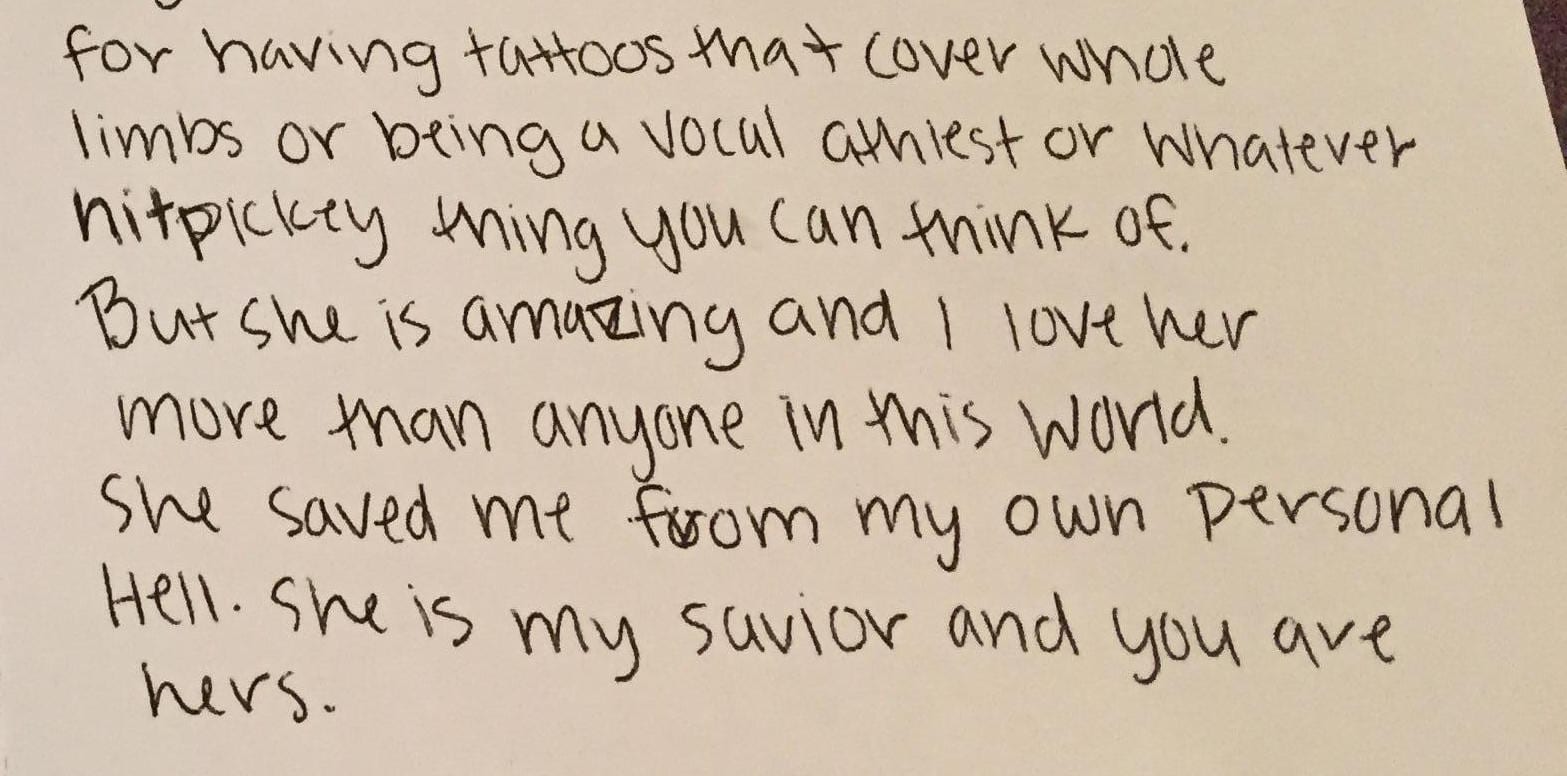 for having tattoos that cover whole
limbs or being a vocal athiest or whatever
nitpickey thing you can think of.
But she is amazing and I love her
more than anyone in this world.
She saved me from my own personal
Hell. She is my savior and you are
hers.